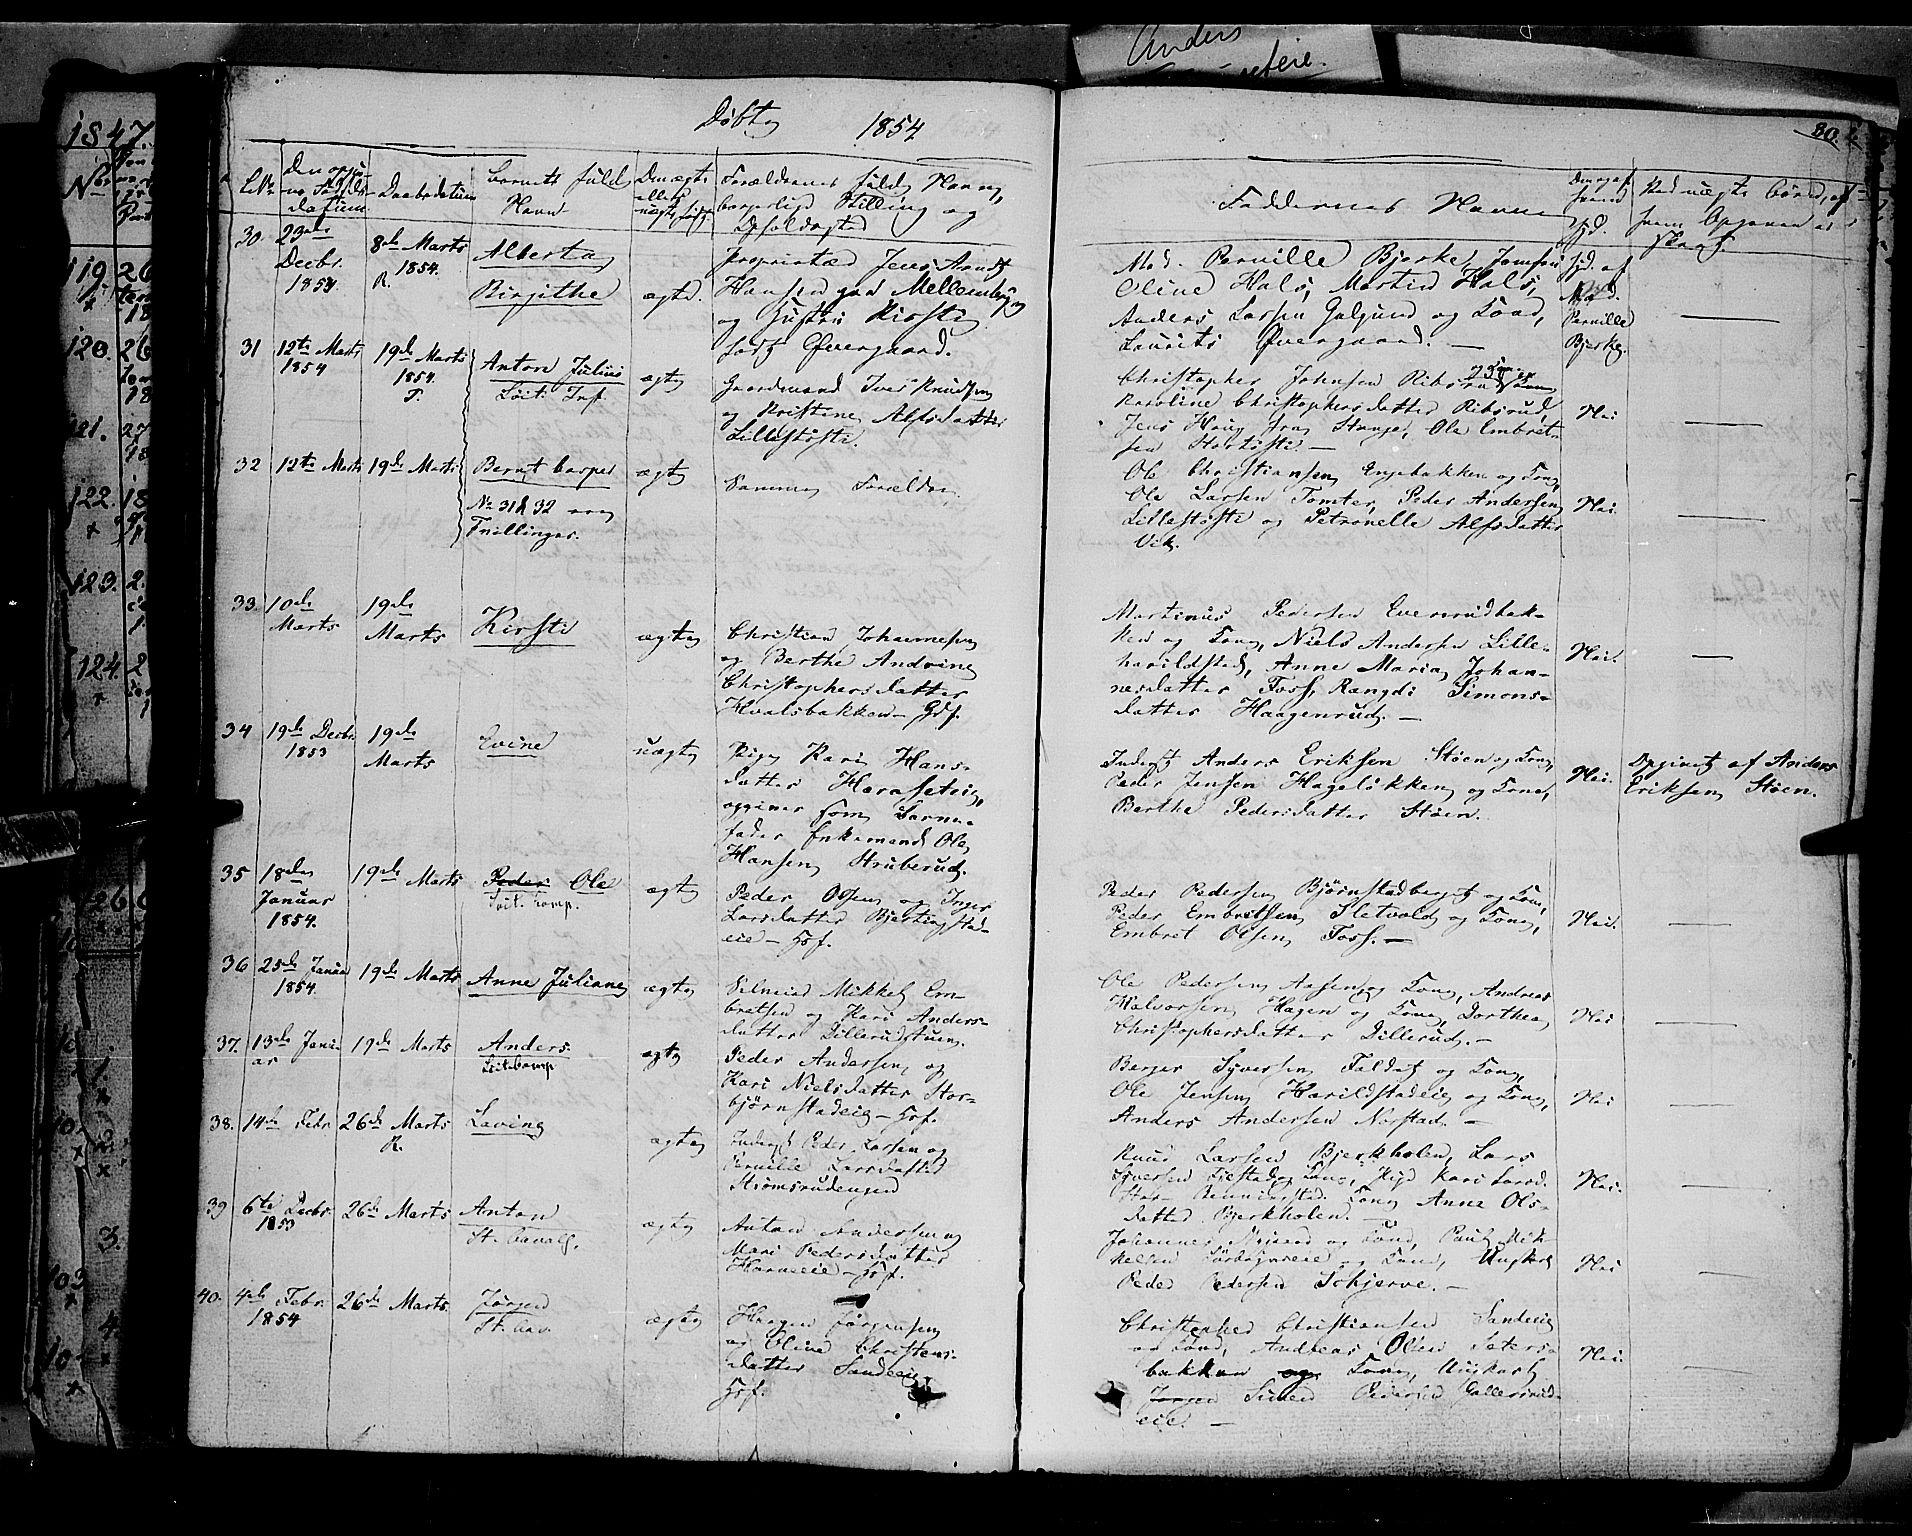 Anders
Døbte 1854
1847.
No.
119.
120.
121.
122.
123.
124.
80.
No.
Daabsdatum
Barnets fulde Navn
Forældrenes fulde Navn, borgerlige Stilling og Opholdssted
Faddernes Navne
30. 23de Decbr. 1853
8de Marts 1854. R.
Alberta Birgithe
ægte.
Proprietær Jens Arndt
Hansen paa Mellemberg
og Gustava Kirstine
født Øvergaard.
Mad. Pernille Bjerke, Jomfru
Oline Hals, Martin Hals,
Anders Larsen Gulsund og Kone,
Laurits Øvergaard. —
Mad. Pernille Bjerke.
31 12te Marts 1854
19de Marts 1854.
Anton Julius
ægte
Gaardmand Iver Knudsen
og Kristine Alfsdatter
Lilletøfte.
Christopher Johnsen Ribsrud
Karoline Christophersdatter Ribsrud,
Jens Haug fra Stange, Ole Embret-
sen Stortøfte. —
Nei
32 12te Marts
19de Marts
Bernt Casper
No 31 & 32 ere
Tvillinger.
ægte
Samme Forældre.
Ole Christiansen Engebakken og Kone
Ole Larsen Tomter, Peder Andersen
Lilletøfte og Petronelle Alfsdatter
Vik.
Nei.
33. 10de Marts
19de Marts
Kirsti
ægte
Christian Johannesen
og Berthe Andrine
Christophersdatter
Hvalsbakken
Martinus Pedersen Evensrudbak-
ken og Kone, Niels Andersen Lille-
harildstad, Anne Maria Johan-
nesdatter Foss, Rangdi Simons-
datter Haagenrud. —
Nei.
34 19de Decbr. 1853
19de Marts
Evine
uægte
Pige Kari Hans-
datter Horasetrie,
opgiver som Barne-
fader Enkemand Ole
Hansen Struberud.
Inderst Anders Eriksen Støen og Kone,
Peder Jensen Hageløkken og Kone,
Berthe Pedersdatter Støen.
Nei.
Opgivet af Anders
Eriksen Støen.
35 18de Januar 1854.
19de Marts
Peder Ole
ægte
Peder Olsen og Inger
Larsdatter Bjertingstad-
eie — Hsf.
Peder Pedersen Bjørnstadberget og Kone,
Peder Embretsen Sletvold og Kone,
Embret Olsen Foss. —
Nei.
36 25de Januar 1854.
19de Marts
Anne Juliane
ægte
Selveier Mikkel Em-
bretsen og Kari Anders-
datter Dillerudstuen.
Ole Pedersen Aasen og Kone, Andreas
Halvorsen Hagen og Kone, Dorthea
Christophersdatter Dillerud. —
Nei
37. 13de Janu-
ar
19de Marts
Anders.
ægte
Peder Andersen og
Kari Nielsdatter Stor-
bjørnstadeie — Hsf.
Berger Syversen Feldet og Kone,
Ole Jensen Harildstadeie og Kone,
Anders Andersen Norstad. —
Nei
38. 14de Febr
26de Marts
R.
Lavine
ægte
Inderst Peder Larsen og
Pernille Larsdatter
Strømsrudengen
Knud Larsen Bjerkholen, Lars
Syversen Kone, Pige Kari Larsd.
Kone Anne Ols-
datter Bjerkholen. —
Nei.
39 6te Decbr. 1853
26de Marts
Anton
ægte
Anton Andersen og
Mari Pedersdatter
Horneeie — Hsf.
Johannes og Kone, Paul Mik-
kelsen og Kone, Ungkarl
Peder Pedersen Schjerve. —
Nei
40. 4de Febr. 1854
26de Marts
Jørgen
ægte
Haagen Jørgensen
og Oline Christens-
datter Sandeeie
Hsf.
Christopher Christiansen Sandeeie
og Kone, Andreas Olsen Seters-
bakken og Kone, Ungkarl
Jørgen Simen Pedersen Gallerud-
eie. —
Nei.